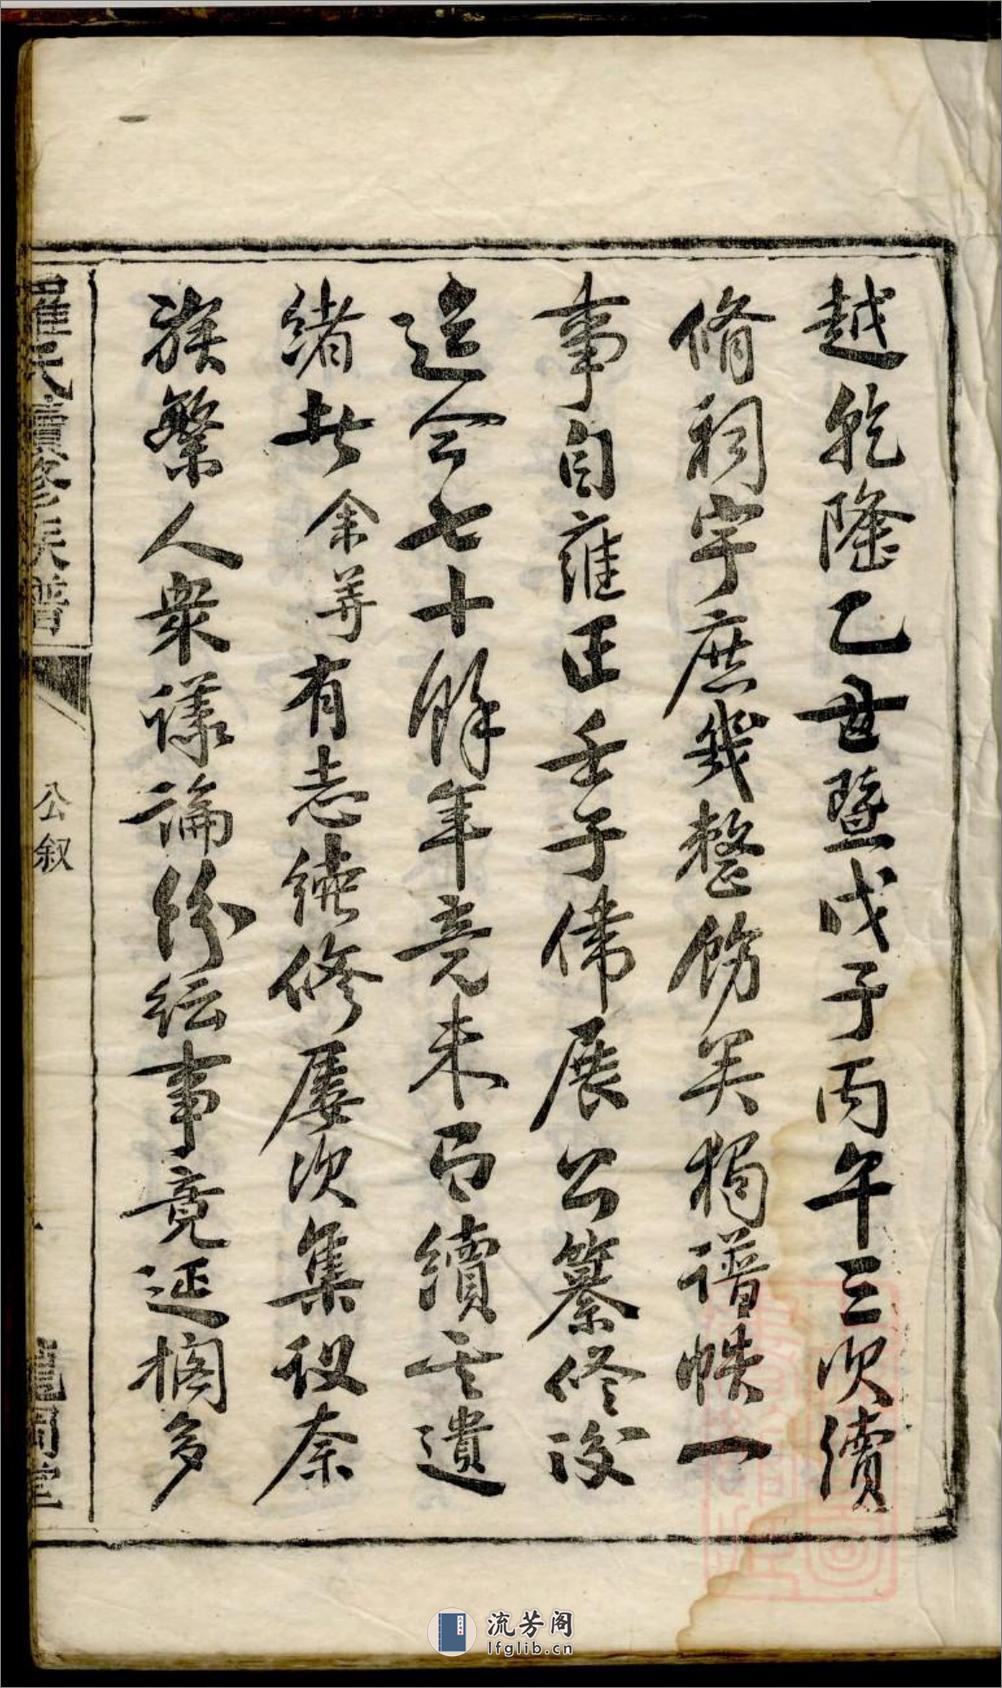 越乾隆乙丑暨戊子丙午三次續
脩祠宇庶幾整飭矣獨譜帙一
事自雍正壬子偉展公纂修後
迄今七十餘年竟未有續其遺
緒者余等有志續修屡次集議奈
族繁人衆議論紛紜事竟延擱多
羅氏續修族譜
公叙
流芳阁
lfglib.cn